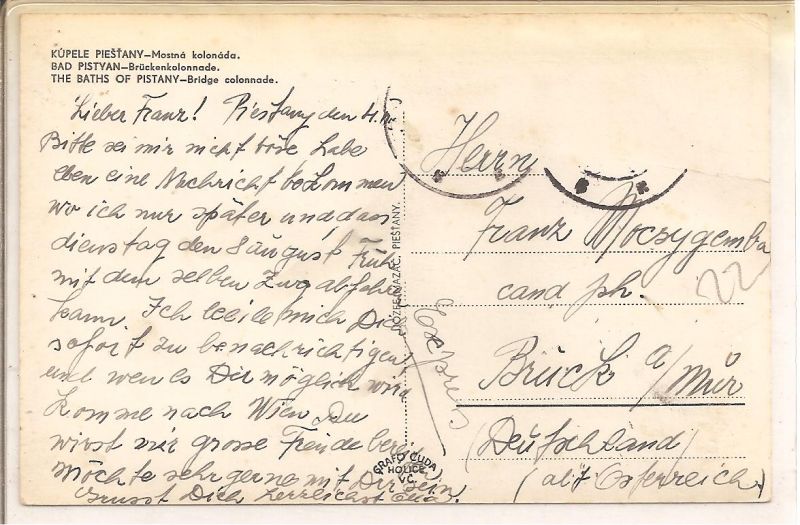 KÚPELE PIEŠŤANY—Mostná kolonáda.
BAD PISTYAN—Brückenkolonnade.
THE BATHS OF PISTANY—Bridge colonnade.
Lieber Franz! Piestany den 4.
Bitte sei mir nicht böse habe
eben eine Nachricht bekommen
wo ich nur später und dass
dienstag den 8 August Früh
mit dem selben Zug abfahre
kann. Ich beeile mich Dich
sofort zu benachrichtigen
und wen es Dir möglich wird
komme nach Wien Du
wirst mir grosse Freude berei
Möchte sehr gerne mit Dir sein!
Grusst Dich herzlichst
JOZEF MAZÁČ, PIEŠŤANY.
GRAFO ČUDA
HOLICE
V.Č.
Expres
Herrn
Franz Moczygemba
22
cand ph.
Brück a/Mür
(Deutschland)
(alt Österreich)